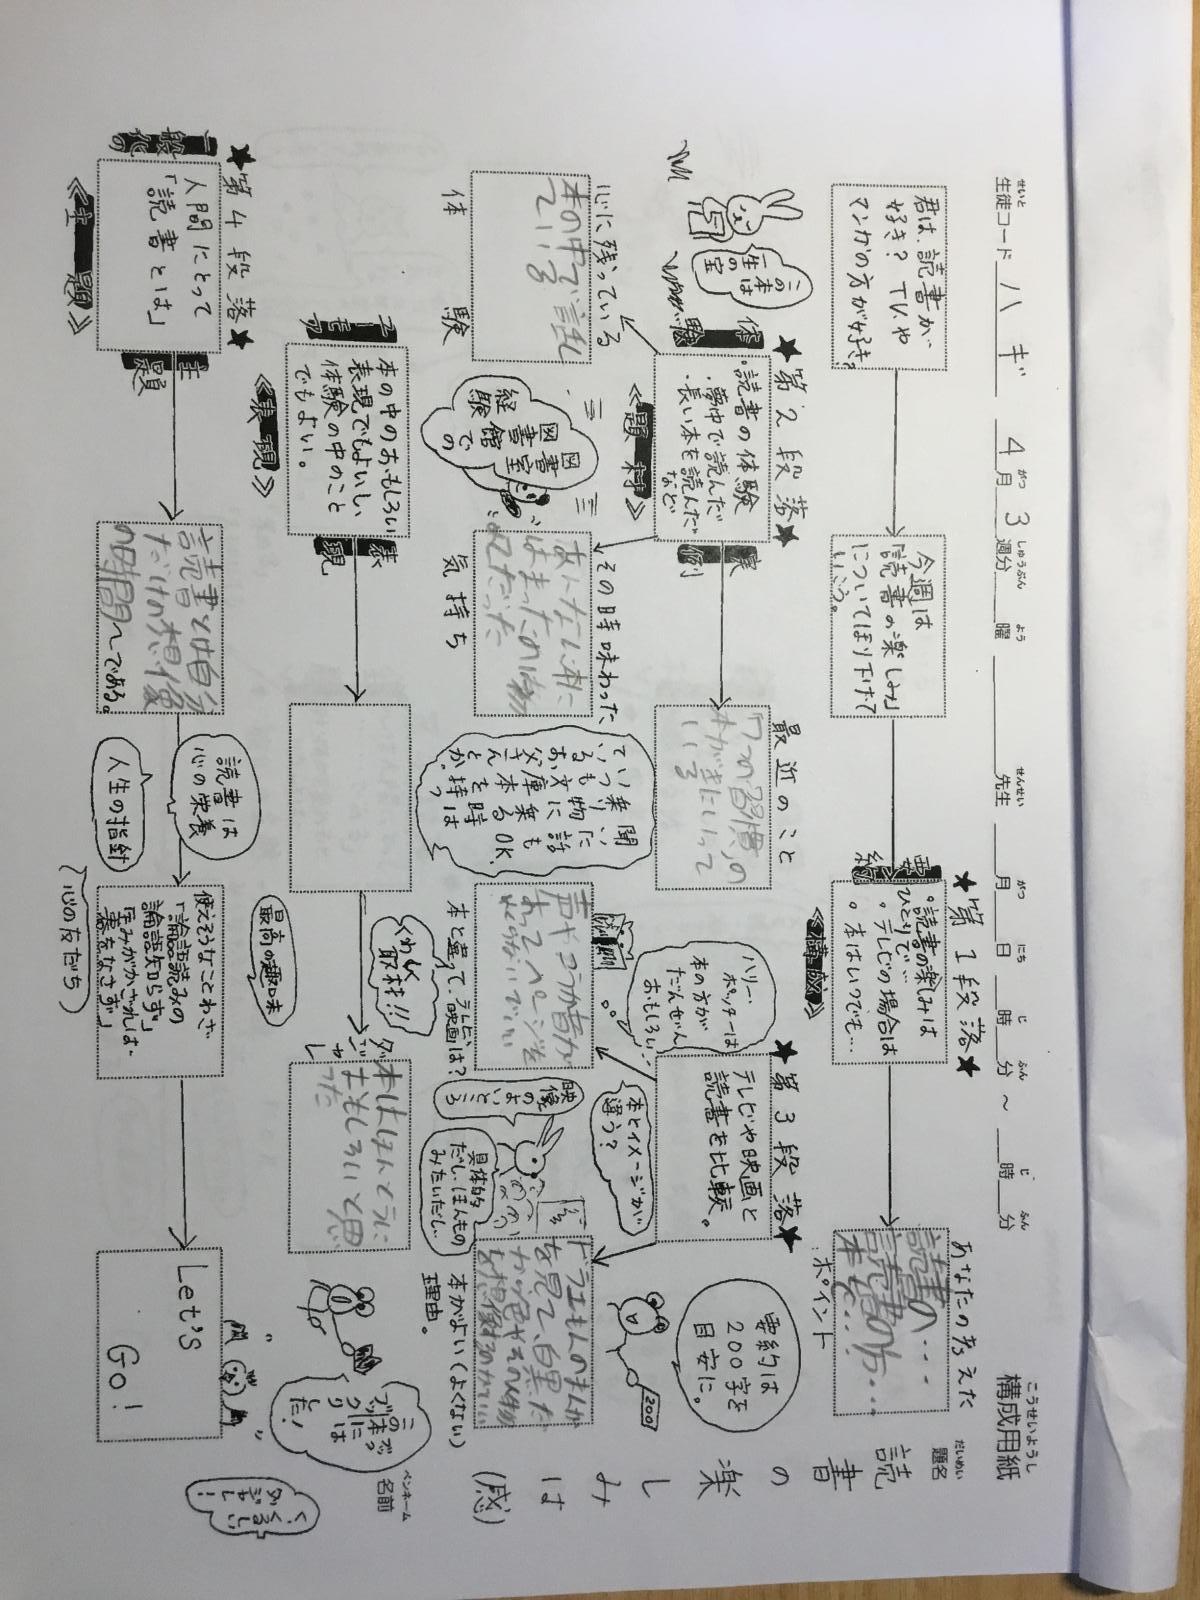 構成用紙
こうせいようし
題名
だいめい
読書の楽しみは(感)
ペンネーム
名前
生徒コード ハギ 4月3週分 曜 先生 月 日 時 分 ~ 時 分
せいと
がつ
しゅうぶん
よう
せんせい
がつ
にち
じ
ふん
じ
ふん
君は、読書が
好き?TVや
マンガの方が好き?
今週は
「読書の楽しみ」
についてほり下げて
いこう。
★第1段落★
要約
。読書の楽しみは
ひとりで…
。テレビの場合は
。本はいつでも…
《構成》
あなたの考えた
読書の・・・
読書の方・・・
本も・・・
ポイント
要約は
200字を
目安に。
200!
★第2段落★
体験
・読書の体験
・夢中で読んだ
・長い本を読んだ
など
《題材》
実例
この本は
一生の宝
心に残っている
本の中で話
ている
体験
図書室
図書館での
経験
その時味わった
あんなに本に
はまったのは初
めてだった
気持ち
最近のこと
「7つの習慣」の
本がきにいって
いる
乗り物に乗る時は
いつも文庫本を持っ
ている
お父さんとか。
聞いた話もOK
★第3段落★
テレビや映画と
読書を比較。
ハリー・
ポッターは
本の方が
だんぜん
おもしろい!
本とイメージが
違う?
本と違って、テレビ、映画は?
映像の
よいところ
具体的
だし、ほんもの
みたいだし
ドラえもんのまんが
を見て、白黒だ
から色やその物
を想像するのがたのしい
本がよい(よくない)
理由。
ユーモア
本の中のおもしろい
表現でもよいし、
体験の中のこと
でもよい。
《表現》
表現
くわしく
取材!!
ダジャレ
本はほんとうに
おもしろいと思
った
この本ブック
にはブックリ
した!
くくるしい
ダジャレ!
★第4段落★
一般化の
人間にとって
「読書とは」
《主題》
主題
読書とは自分
だけの想像
の時間~である。
読書は
心の栄養
人生の指針
最高の趣味
(心の友だち)
使えそうなことわざ
「論語読みの
論語知らず」
「玉みがかざれば
器をなさず」
Let's
Go!